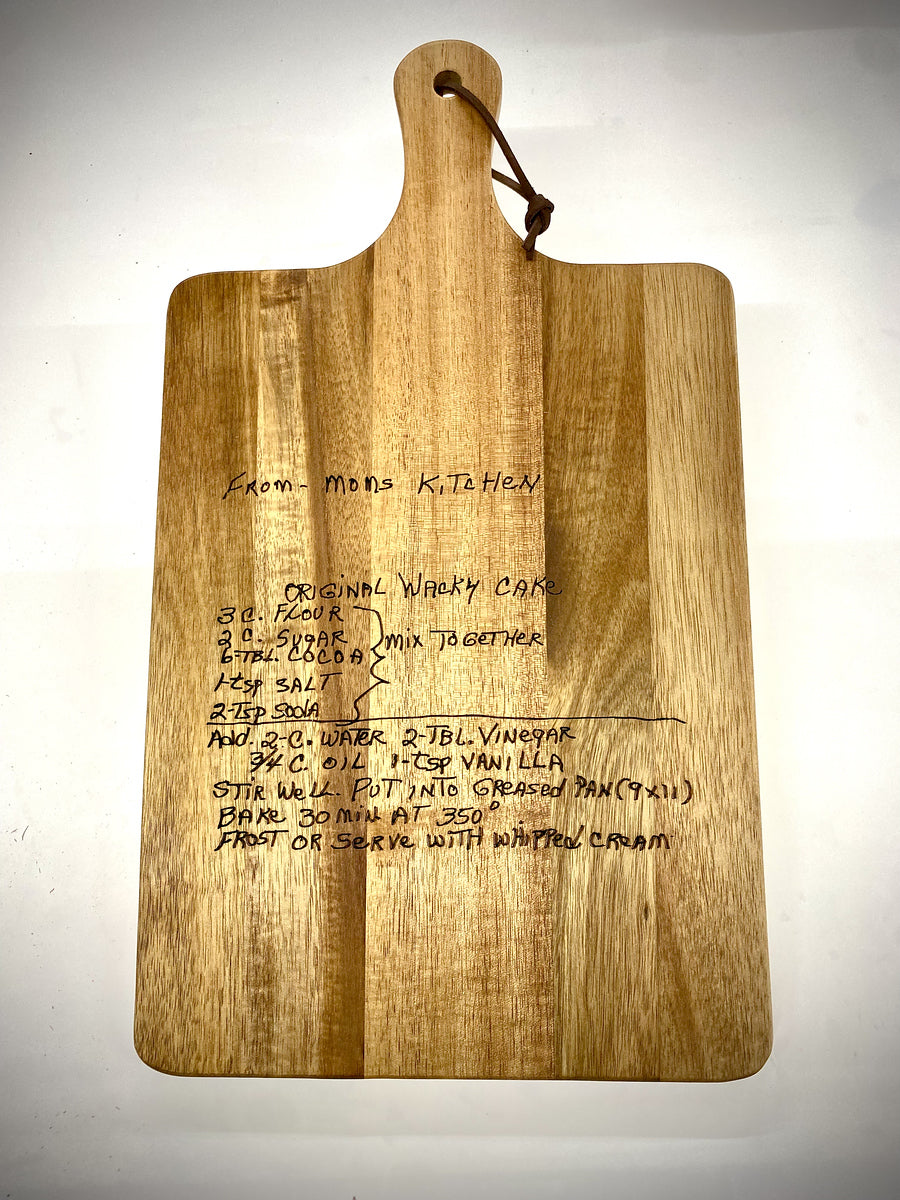 FROM- MOMS KITCHEN
ORIGINAL WACKY CAKE
3 C. FLOUR
2 C. SUGAR
MIX TOGETHER
6-TBL. COCOA
1-tsp SALT
2-Tsp SODA
Add. 2-C. WATER 2-TBL. VINEGAR
3/4 C. OIL 1-tsp VANILLA
STIR WELL. PUT INTO GREASED PAN (9x11)
BAKE 30 MIN AT 350°
FROST OR SERVE WITH WHIPPED CREAM